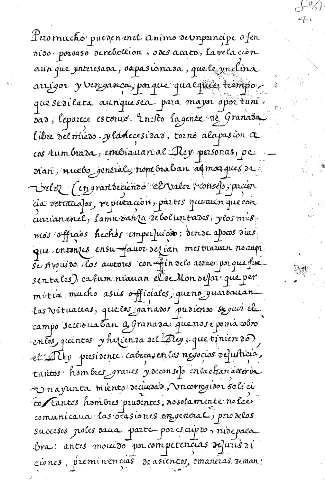 Pero mucho pueden en el animo de un principe ofen
dido por caso de rebellion, o desacato, la relacion
aunque ynteresada, o apasionada, que le ynclina
a rigor y vengança, porque qualquier tiempo
que se dilata aunque sea para mayor oportuni
dad, le parece estorvo. En esto la gente de Granada
libre del miedo, y la necesidad, torno a la pasion a
costumbrada, embiavan al Rey personas, pe
dian, nuevo general, nombravan al marques de
Velez engrandeciendo el valor, consejo, pacien
cia de trabajos, reputacion, partes que aun que con
currian en el, la mudanza de voluntades, y los mis
mos officios hechos en perjuicio, dende a pocos dias
que entonces en su favor dezian mostravan no aver
se seguido los autores con fin de lo
calumniavan el de Mondejar que per
mitia mucho a sus officiales, que no guardavan
las vituallas, que los ganados pudiendo seguir el
campo se llevavan a Granada que no se ponia cobro
en los quintos y hazienda del Rey, que teniendo
el Rey presidente cabeza en los negocios de justicia,
tantos hombres graves y de consejo en la chancilleria
un ayuntamiento de ciudad, un corregidor solici
to, tantos hombres prudentes, no solamente no les
comunicava las ocasiones en general, pero de los
successos no les dava parte por escripto, ni de pala
bra: antes movido por competencias de jurisdi
ciones, preminencias de asientos, o maneras de man